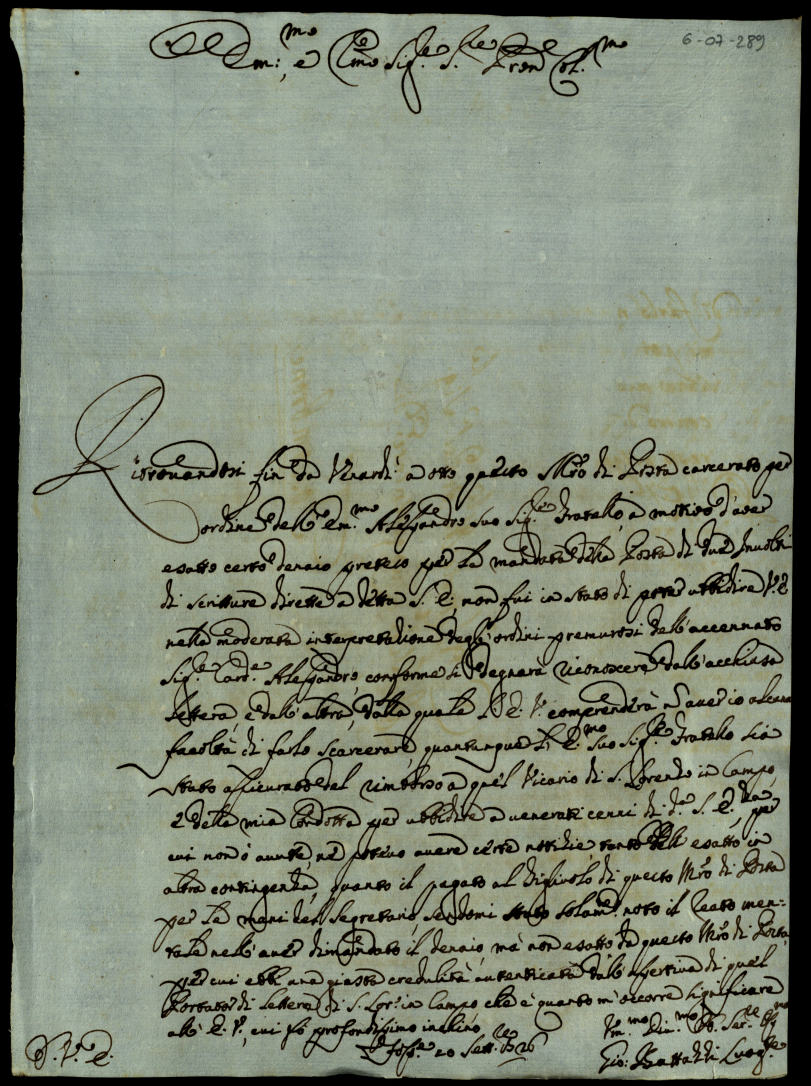 6-07-289
Em:mo, e Sig.r Pron Col.mo
Ritrovandosi fin da Venardì a otto questo Mro di Posta carcerato per
ordine dell'Em.mo Alessandro suo Sig.r Fratello a motivo d'aver
esatto certo denaio preteso per la mandata della Posta di due Involti
di scritture dirette a detta S. E., non fui in stato di poter ubbidire V. E.
nella moderata interpretazione degl'ordini premurosi dell'accennato
Sig.r Card.e Alessandro, conforme si degnarà riconoscere dall'acchiusa
lettera, e dall'altra, dalla quale l'E. V. comprenderà n aver io alcuna
facoltà di farlo scarcerare, quantunque l'E.mo Suo Sig.r Fratello sia
stato assicurato del rimborso a quel Vicario di S. Lorenzo in Campo
e della mia Condotta per ubbidire a venerati cenni di d.a S. E., per
cui non ò avute nè potevo avere certe notizie tanto dell'esatto in
altra contingenza, quanto il pagato al Figlivolo di questo Mro di Posta
per le mani del Segretario, sendomi stato solam.e noto il Reato men-
tale nell'aver dimandato il denaio, mà non esatto da questo Mro di Posta,
per cui ebbi una giusta credulità autenticata dall'assertiva di quel
Portator di Lettere di S. Lor.o in Campo che è quanto m'occorre significare
all'E. V., cui fò profondissimo inchino
20 Sett.bre
D. V. E.
Um.mo Div.mo Ob. Ser.re
Gio: Batta Luog.te